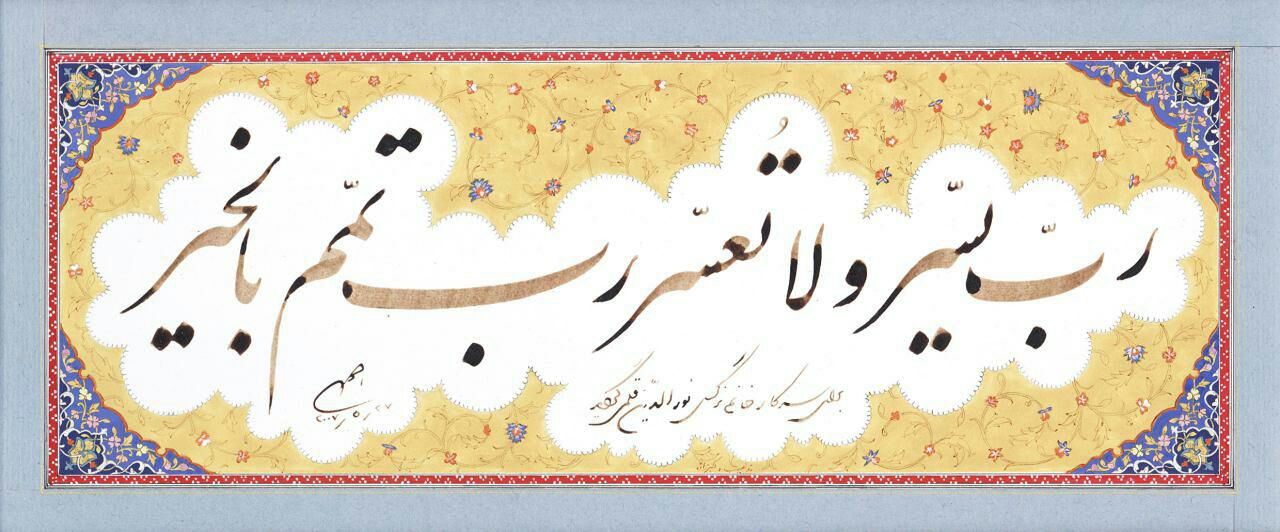 ربّ یسّر ولا تُعسّر رب تمّم بالخیر
برای سرکار خانم نرگس نورالدین قلمی گردید